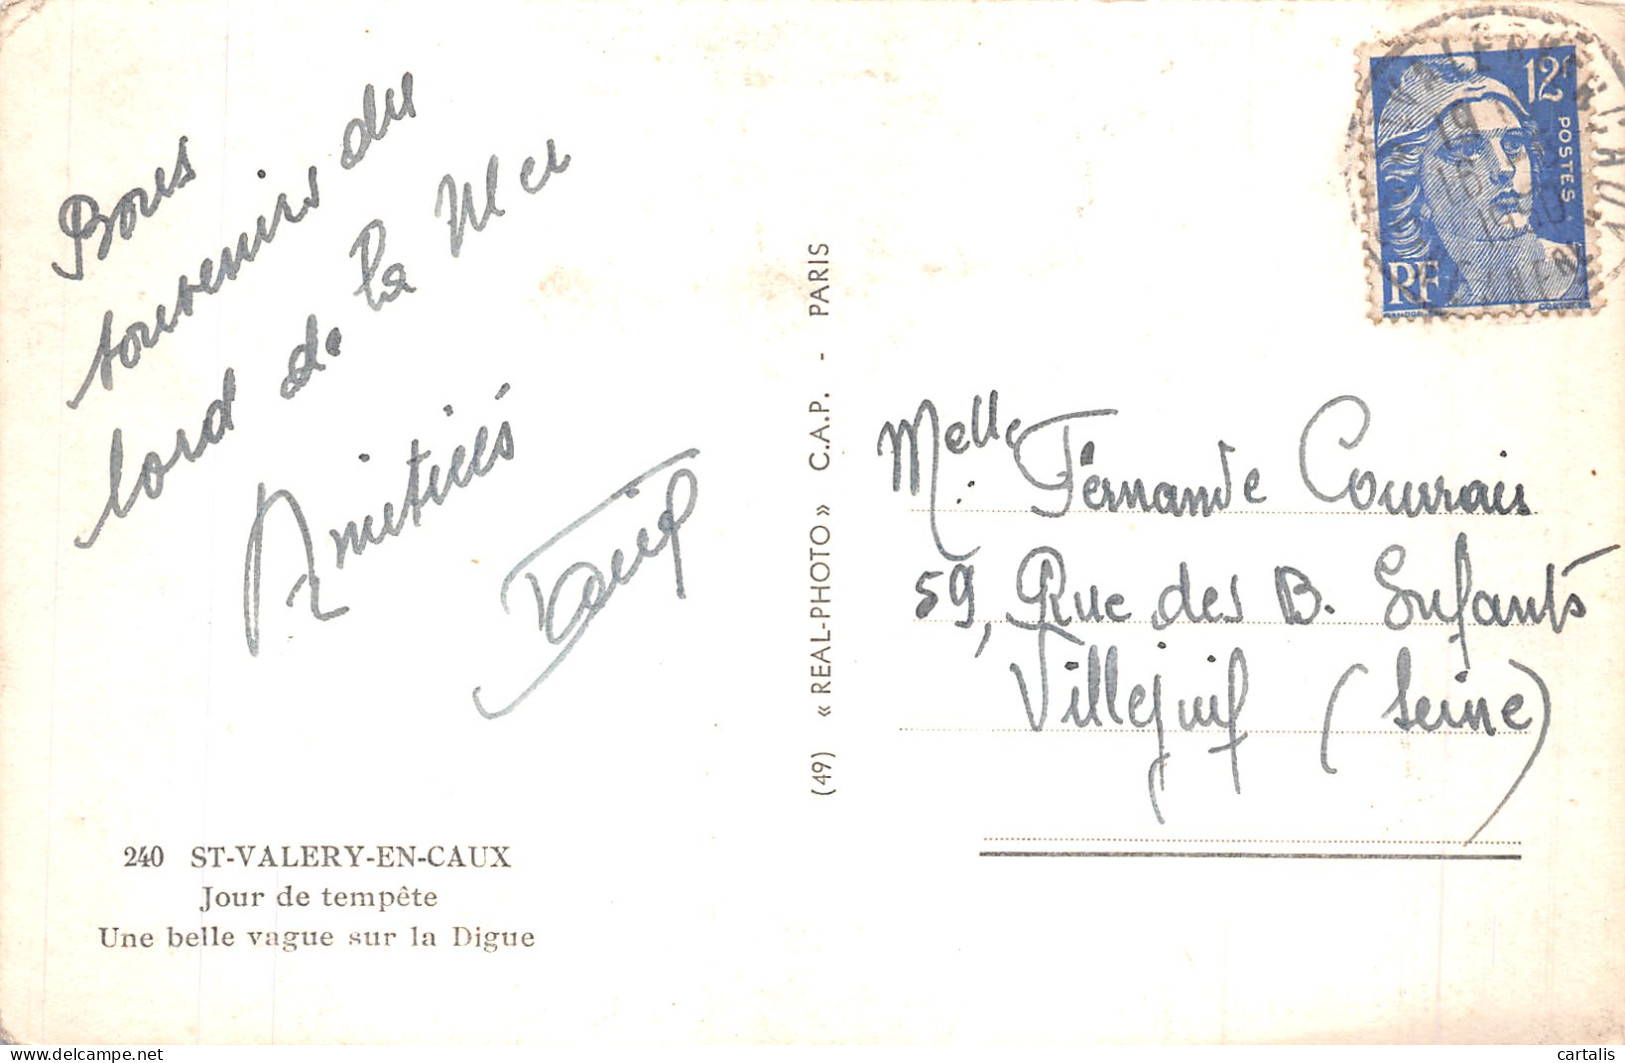 Bons
souvenirs du
bord de la Mer
Amitiés
240 ST-VALERY-EN-CAUX
Jour de tempête
Une belle vague sur la Digue
(49) « REAL-PHOTO » C.A.P. - PARIS
12F
POSTES
RF
GANDON
Melle Fernande Courrais
59, Rue des B. Enfants
Villejuif (Seine)
cartalis